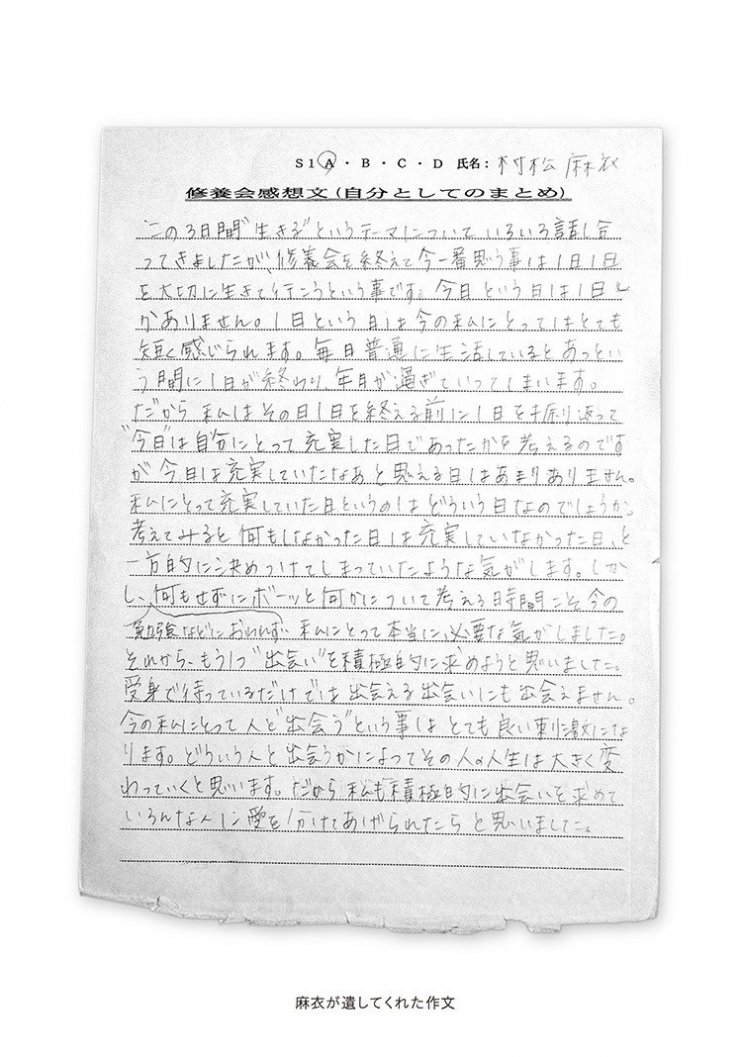 S1 A・B・C・D 氏名：村松 麻衣
修養会感想文(自分としてのまとめ)
この3日間"生きる"というテーマについていろいろ話し合
ってきましたが、修養会を終えて今一番思う事は1日1日
を大切に生きて行こうという事です。今日という日は1日し
かありません。1日という日は今の私にとってはとても
短く感じられます。毎日普通に生活しているとあっとい
う間に1日が終わり、年月が過ぎていってしまいます。
だから私はその日1日を終える前に1日を振り返って
"今日"は自分にとって充実した日であったかを考えるのです
が今日は充実していたなあと思える日はあまりありません。
私にとって充実していた日というのはどういう日なのでしょうか。
考えてみると何もしなかった日は充実していなかった日、と
一方的に決めつけてしまっていたような気がします。しか
し、何もせずにボーッと何かについて考える時間こそ今の
勉強などにおわれず、私にとって本当に必要な気がしました。
それから、もう1つ"出会い"を積極的に求めようと思いました。
受身で待っているだけでは出会える出会いにも出会えません。
今の私にとって人と"出会う"という事はとても良い刺激にな
ります。どういう人と出会うかによってその人の人生は大きく変
わっていくと思います。だから私も積極的に出会いを求めて
いろんな人に愛を分けてあげられたらと思いました。
麻衣が遺してくれた作文